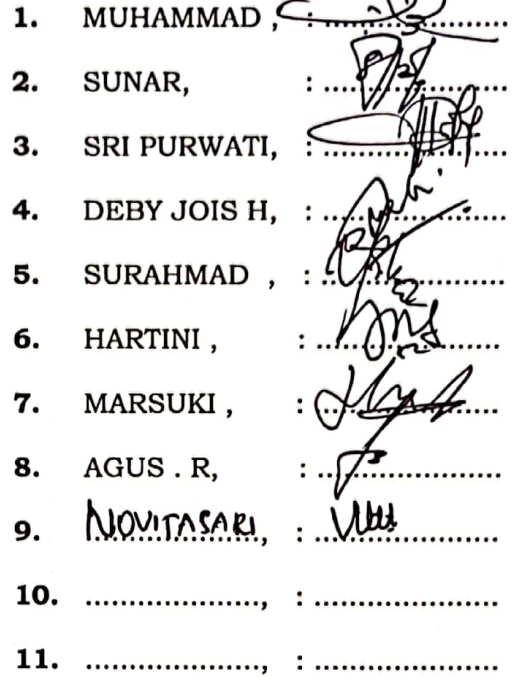 1. MUHAMMAD , : ....................
2. SUNAR, : ....................
3. SRI PURWATI, : ....................
4. DEBY JOIS H, : ....................
5. SURAHMAD , : ....................
6. HARTINI , : ....................
7. MARSUKI , : ....................
8. AGUS . R, : ....................
9. NOVITASARI, : ....................
10. ...................., : ....................
11. ...................., : ....................